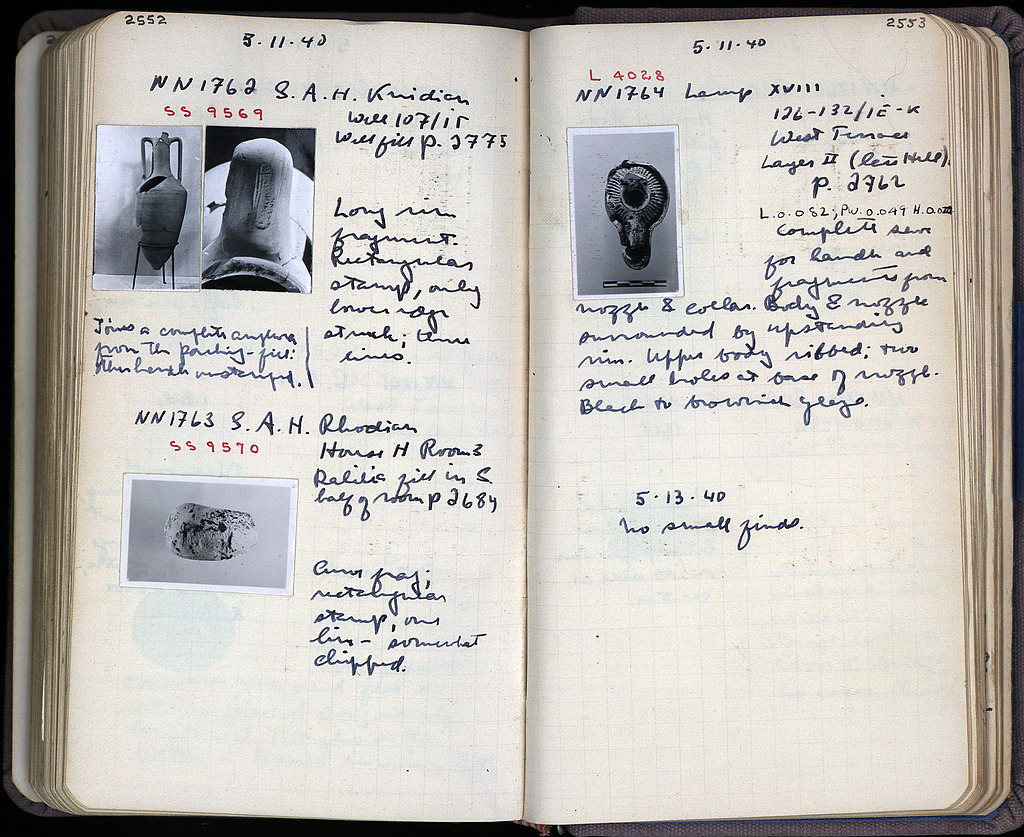 2552
5.11.40
NN1762 S.A.H. Knidian
SS 9569
Well 107/ΙΓ
Well fill p. 2775
Long rim
fragment.
Rectangular
stamp, only
lower edge
struck; three
lines.
Joins a complete amphora
from the packing-fill:
other handle unstamped.
NN1763 S.A.H. Rhodian
SS 9570
House H Room 3
fill in S
half of room p 2684
Curve frag;
rectangular
stamp, one
line - somewhat
chipped.
2553
5.11.40
L 4028
NN1764 Lamp XVIII
126-132/ΙΕ-Κ
West Terrace
Layer II (late Hell).
p. 2762
L.0.082; PW.0.049 H.
Complete save
for handle and
fragments from
nozzle & collar. Body & nozzle
surrounded by upstanding
rim. Upper body ribbed; two
small holes at base of nozzle.
Black to brownish glaze.
5.13.40
No small finds.